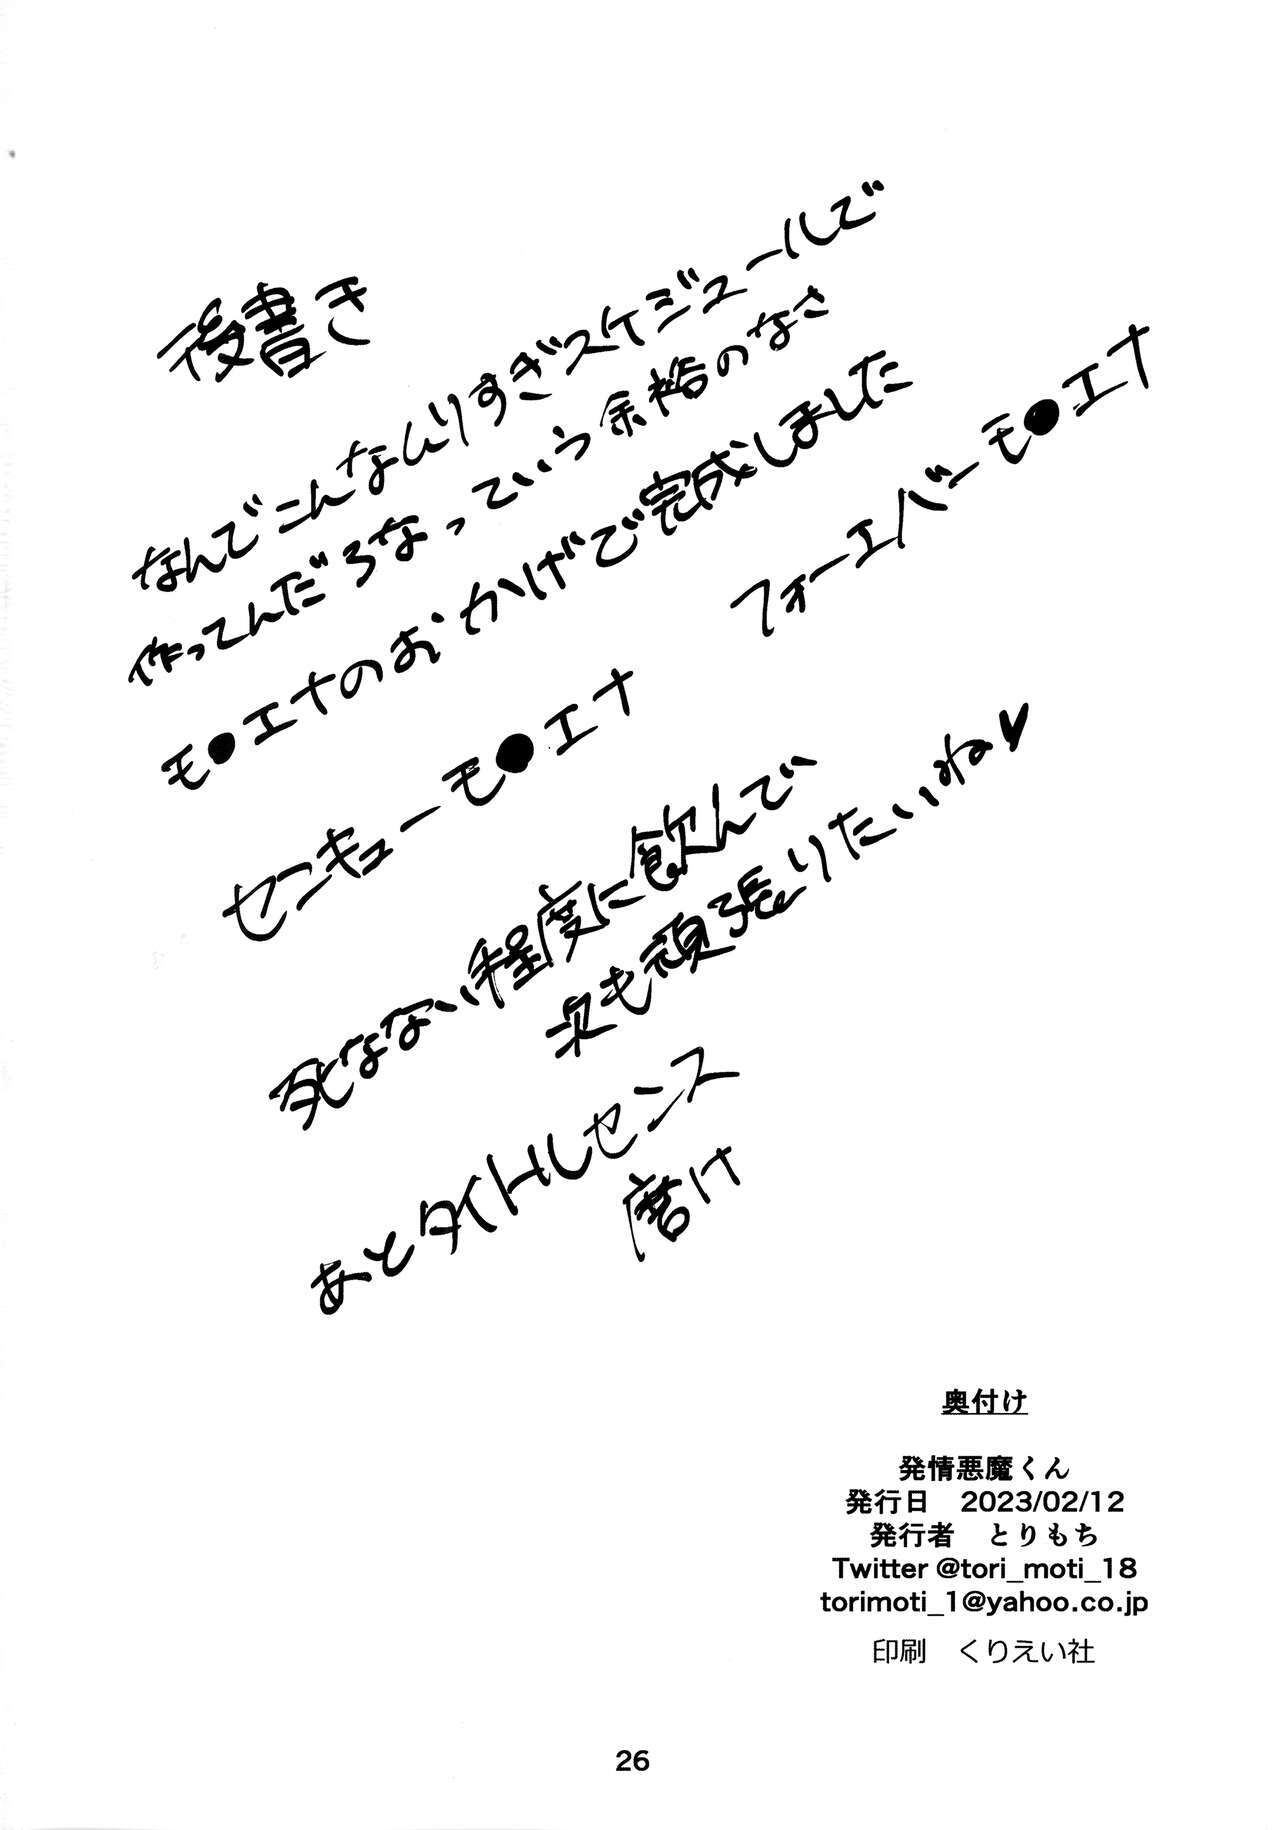 後書き
なんでこんなんりすぎスケジュールで
作ってんだろなっていう余裕のなさ
モ●エナのおかげで完成しました
フォーエバーモ●エナ
センキューモ●エナ
死なない程度に飲んで
次も頑張りたいね♥
あとタイトルセンス
磨け
奥付け
発情悪魔くん
発行日 2023/02/12
発行者 とりもち
Twitter @tori_moti_18
torimoti_1@yahoo.co.jp
印刷 くりえい社
26